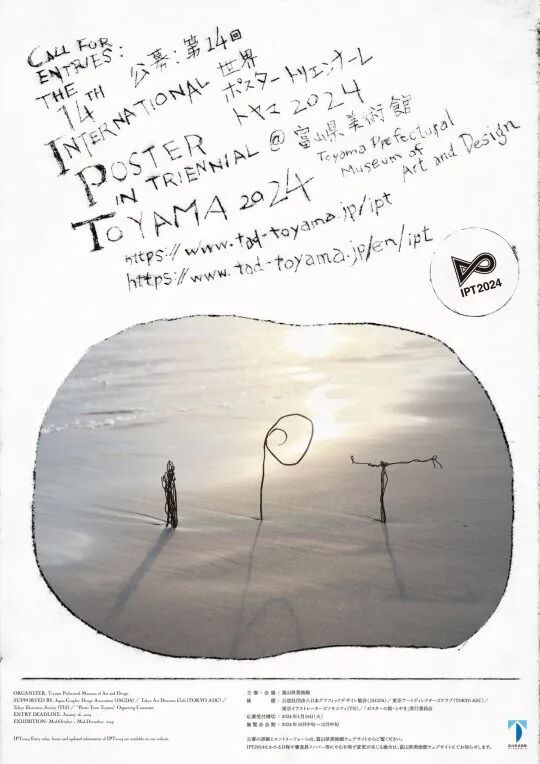 CALL FOR
ENTRIES:
THE
14TH
INTERNATIONAL
POSTER
IN TRIENNIAL
TOYAMA 2024
公募:第14回
世界
ポスタートリエンナーレ
トヤマ2024
@ 富山県美術館
Toyama Prefectural
Museum of
Art and Design
https://www.tad-toyama.jp/ipt
https://www.tad-toyama.jp/en/ipt
IPT2024
IPT
ORGANIZER: Toyama Prefectural Museum of Art and Design
SUPPORTED BY: Japan Graphic Design Association (JAGDA) / Tokyo Art Directors Club (TOKYO ADC) /
Tokyo Illustrators Society (TIS) / "Poster Town Toyama" Organizing Committee
ENTRY DEADLINE: January 16, 2024
EXHIBITION: Mid-October – Mid-December, 2024
IPT2024 Entry rules, forms and updated information of IPT2024 are available on our website.
主催・会場:富山県美術館
後援:公益社団法人日本グラフィックデザイン協会(JAGDA)/東京アートディレクターズクラブ(TOKYO ADC)/
東京イラストレーターズ・ソサエティ(TIS)/「ポスターの街・とやま」実行委員会
応募受付締切:2024年1月16日(火)
展覧会会期:2024年10月中旬〜12月中旬
公募の詳細とエントリーフォームは、富山県美術館ウェブサイトからご覧ください。
IPT2024にかかる日程や審査員メンバー等にやむを得ず変更が生じる場合は、富山県美術館ウェブサイトにてお知らせします。
富山県美術館